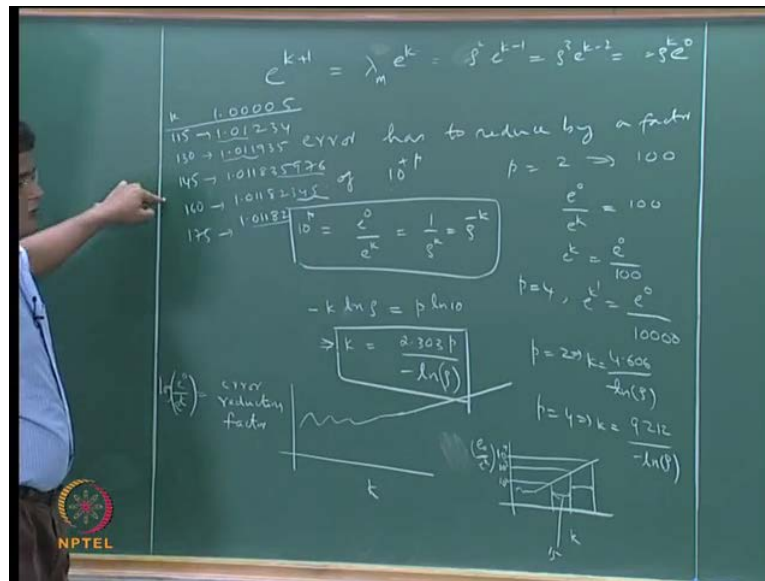 e^{k+1} = λ_m e^k = ρ^2 e^{k-1} = ρ^3 e^{k-2} = -ρ^k e^0
k 1.00005
115 → 1.01234
130 → 1.011935
145 → 1.011835976
160 → 1.01182345
175 → 1.01182
error has to reduce by a factor
of 10^{+p}
p = 2 ⇒ 100
10^p = e^0/e^k = 1/ρ^k = ρ^{-k}
e^0/e^k = 100
e^k = e^0/100
p=4, e^{k'} = e^0/10000
-k ln ρ = p ln 10
⇒ k = 2.303 p/-ln(ρ)
p=2 ⇒ k = 4.606/-ln(ρ)
p=4 ⇒ k = 9212/-ln(ρ)
ln(e^0/e^k) = error
reduction
factor
k
(e_0/e^k)
k
NPTEL